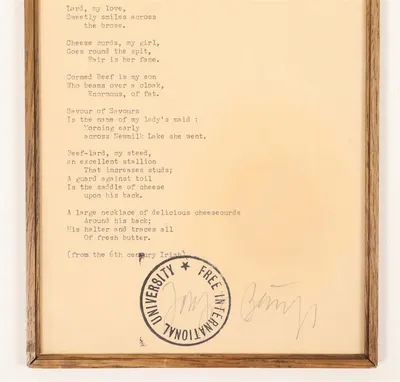 Lard, my love,
Sweetly smiles across
the brose.
Cheese curds, my girl,
Goes round the spit,
Fair is her face.
Corned Beef is my son
Who beams over a cloak,
Enormous, of fat.
Savour of Savours
Is the name of my lady's maid :
Morning early
across Newmilk Lake she went.
Beef-lard, my steed,
an excellent stallion
That increases studs;
A guard against toil
Is the saddle of cheese
upon his back.
A large necklace of delicious cheesecurds
Around his back;
His halter and traces all
Of fresh butter.
(from the 6th century Irish)
FREE INTERNATIONAL UNIVERSITY